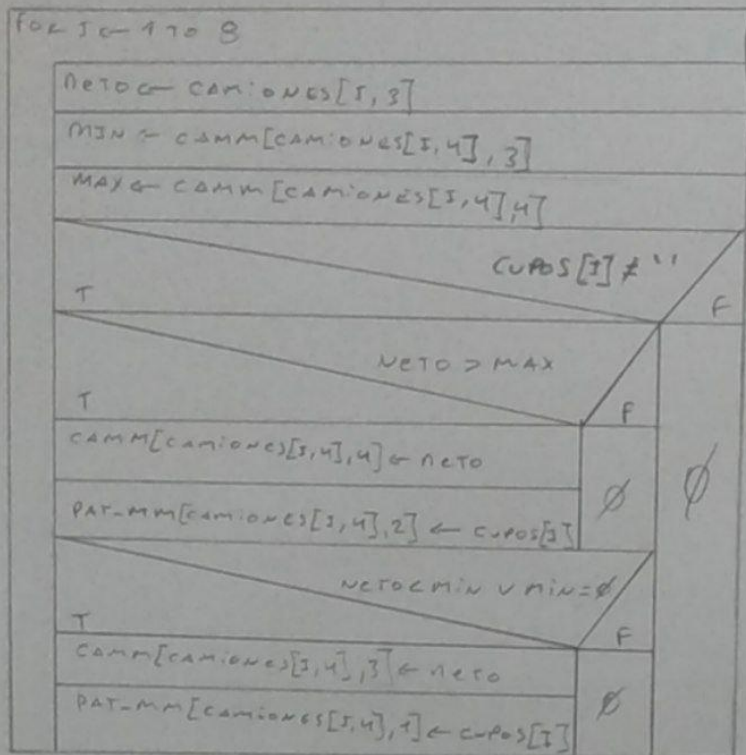 FOR I ← 1 TO 8
NETO ← CAMIONES[I, 3]
MIN ← CAMM[CAMIONES[I, 4], 3]
MAX ← CAMM[CAMIONES[I, 4], 4]
CUPOS[I] ≠ ''
T F
NETO > MAX
T F
CAMM[CAMIONES[I, 4], 4] ← NETO
PAT-MM[CAMIONES[I, 4], 2] ← CUPOS[I]
Ø Ø
NETO < MIN ∨ MIN = Ø
T F
CAMM[CAMIONES[I, 4], 3] ← NETO
PAT-MM[CAMIONES[I, 4], 1] ← CUPOS[I]
Ø